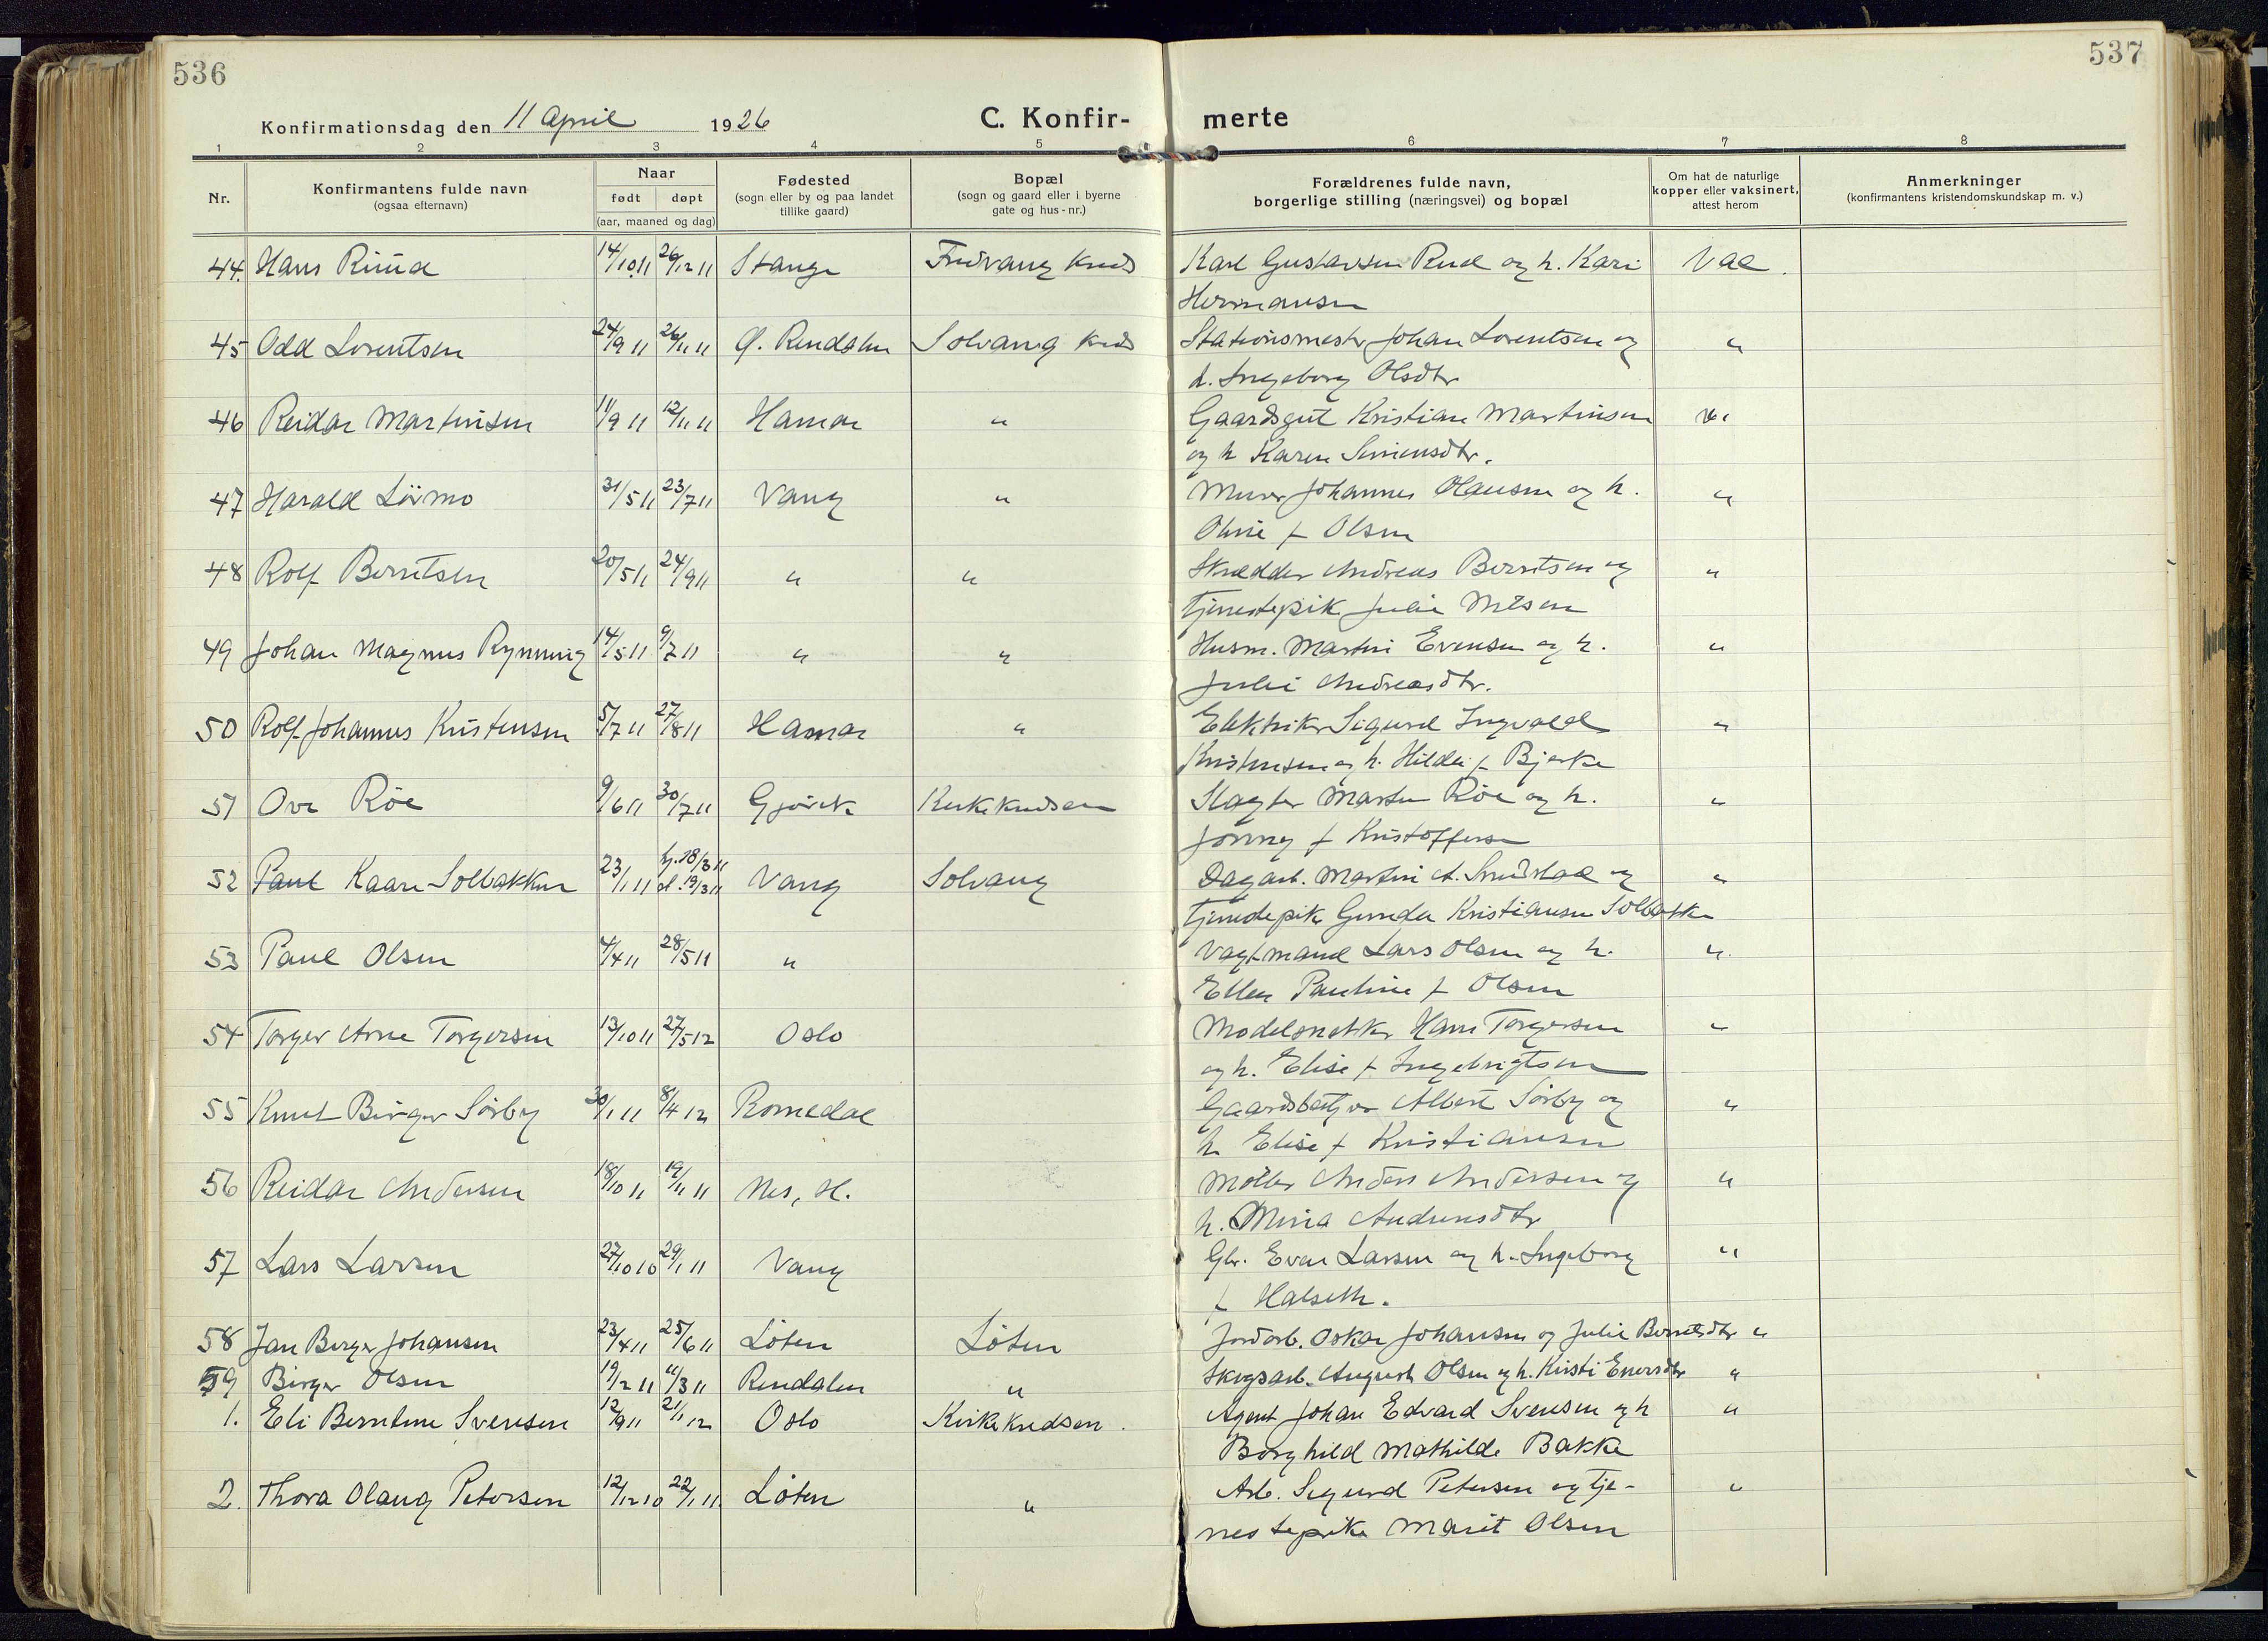 536
537
Konfirmationsdag den 11 april 1926
C. Konfir-
merte
1 2 3 4 5 6 7 8
Nr.
Konfirmantens fulde navn
(ogsaa efternavn)
Naar
født døpt
(aar, maaned og dag)
Fødested
(sogn eller by og paa landet
tillike gaard)
Bopæl
(sogn og gaard eller i byerne
gate og hus-nr.)
Forældrenes fulde navn,
borgerlige stilling (næringsvei) og bopæl
Om hat de naturlige
kopper eller vaksinert,
attest herom
Anmerkninger
(konfirmantens kristendomskundskap m. v.)
44. Hans Ruud 14/10 11 26/12 11 Stange Fredvang kreds Karl Gustavsen Rud og h. Kari Vac.
Hermansen
45 Odd Lorentsen 24/9 11 26/11 11 Ø. Rendalen Solvang kreds Stationsmester Johan Lorentsen og "
h. Ingeborg Olsdtr
46 Reidar Martinsen 11/9 11 12/11 11 Hamar " Gaardsgut Kristian Martinsen "
og h Karen Simensdtr.
47 Harald Lövmo 31/5 11 23/7 11 Vang " Murer Johannes Olausen og h. "
Oline f Olsen
48 Rolf Berntsen 20/5 11 24/9 11 " " Skrædder Andreas Berntsen og "
tjenestepike Julie Nilsen
49 Johan Magnus Rynning 14/5 11 9/7 11 " " Husm. Martin Evensen og h. "
Julie Andreasdtr.
50 Rolf Johannes Kristensen 5/7 11 27/8 11 Hamar " Elektriker Sigurd Ingvald "
Kristensen og h. Hilda f Bjerke
51 Ove Röe 9/6 11 30/7 11 Gjövik Kirkekredsen Slagter Martin Röe og h. "
Jenny f Kristoffersen
52 Paul Kaare Solbakken 23/1 11 hj. 18/3 11 Vang Solvang Dagarb. Martin A. Smedstad og "
d. 19/3 11
tjenestepike Gunda Kristiansen Solbakken
53 Paul Olsen 4/4 11 28/5 11 " Vagtmand Lars Olsen og h. "
Ellen Pauline f Olsen
54 Torger Arne Torgersen 13/10 11 27/5 12 Oslo Modelsnekker Hans Torgersen "
og h. Elise f Ingebrigtsen
55 Knut Birger Sörby 30/1 11 8/4 12 Romedal Gaardsbestyrer Albert Sörby og "
h Elise f Kristiansen
56 Reidar Andersen 18/10 11 19/11 11 Nes, H. Møller Anders Andersen og "
h. Mina Andreasdtr
57 Lars Larsen 27/10 10 29/1 11 Vang Gbr. Even Larsen og h. Ingeborg "
f Halseth.
58 Jan Birger Johansen 23/4 11 25/6 11 Löten Löten Jordarb. Oskar Johansen og Julie Berntsdtr "
59 Birger Olsen 19/2 11 11/3 11 Rendalen " Skogsarb. August Olsen og h. Kirsti Eversdtr "
1. Eli Berntine Svensen 12/9 11 21/1 12 Oslo Kirkekredsen. Agent Johan Edvard Svensen og h "
Borghild Mathilde Bakke
2. Thora Olaug Petersen 12/12 10 22/1 11 Löten " Arb. Sigurd Petersen og tje- "
nestepike Marit Olsen